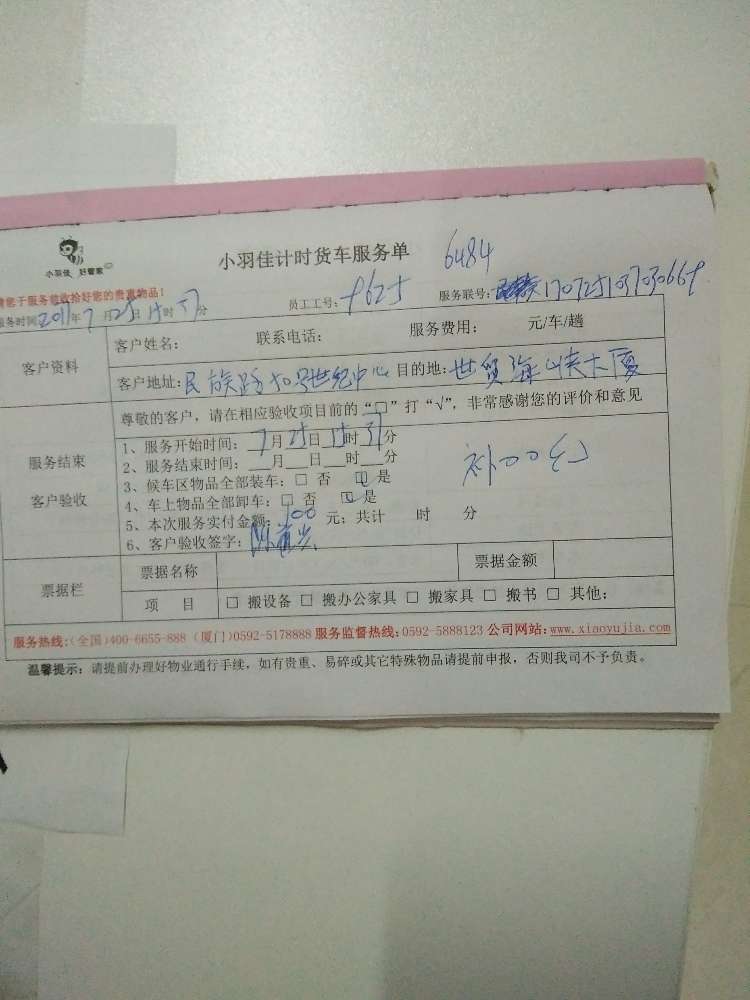 小羽佳 好管家
小羽佳计时货车服务单 6484
请您于服务前收拾好您的贵重物品！
员工工号：9625 服务联号：170725103730669
服务时间 年7月25日15时37分
客户资料 客户姓名： 联系电话： 服务费用： 元/车/趟
客户地址：民族路 号世纪中心 目的地：世贸海峡大厦
尊敬的客户，请在相应验收项目前的“□”打“√”，非常感谢您的评价和意见
服务结束
客户验收
1、服务开始时间：7月25日15时37分
2、服务结束时间：__月__日__时__分
3、候车区物品全部装车：□ 否 ☑ 是
4、车上物品全部卸车：□ 否 ☑ 是
5、本次服务实付金额：100 元；共计 时 分
6、客户验收签字：
票据栏 票据名称 票据金额
项 目 □ 搬设备 □ 搬办公家具 □ 搬家具 □ 搬书 □ 其他：
服务热线：(全国)400-6655-888 (厦门)0592-5178888 服务监督热线：0592-5888123 公司网站：www.xiaoyujia.com
温馨提示：请提前办理好物业通行手续，如有贵重、易碎或其它特殊物品请提前申报，否则我司不予负责。